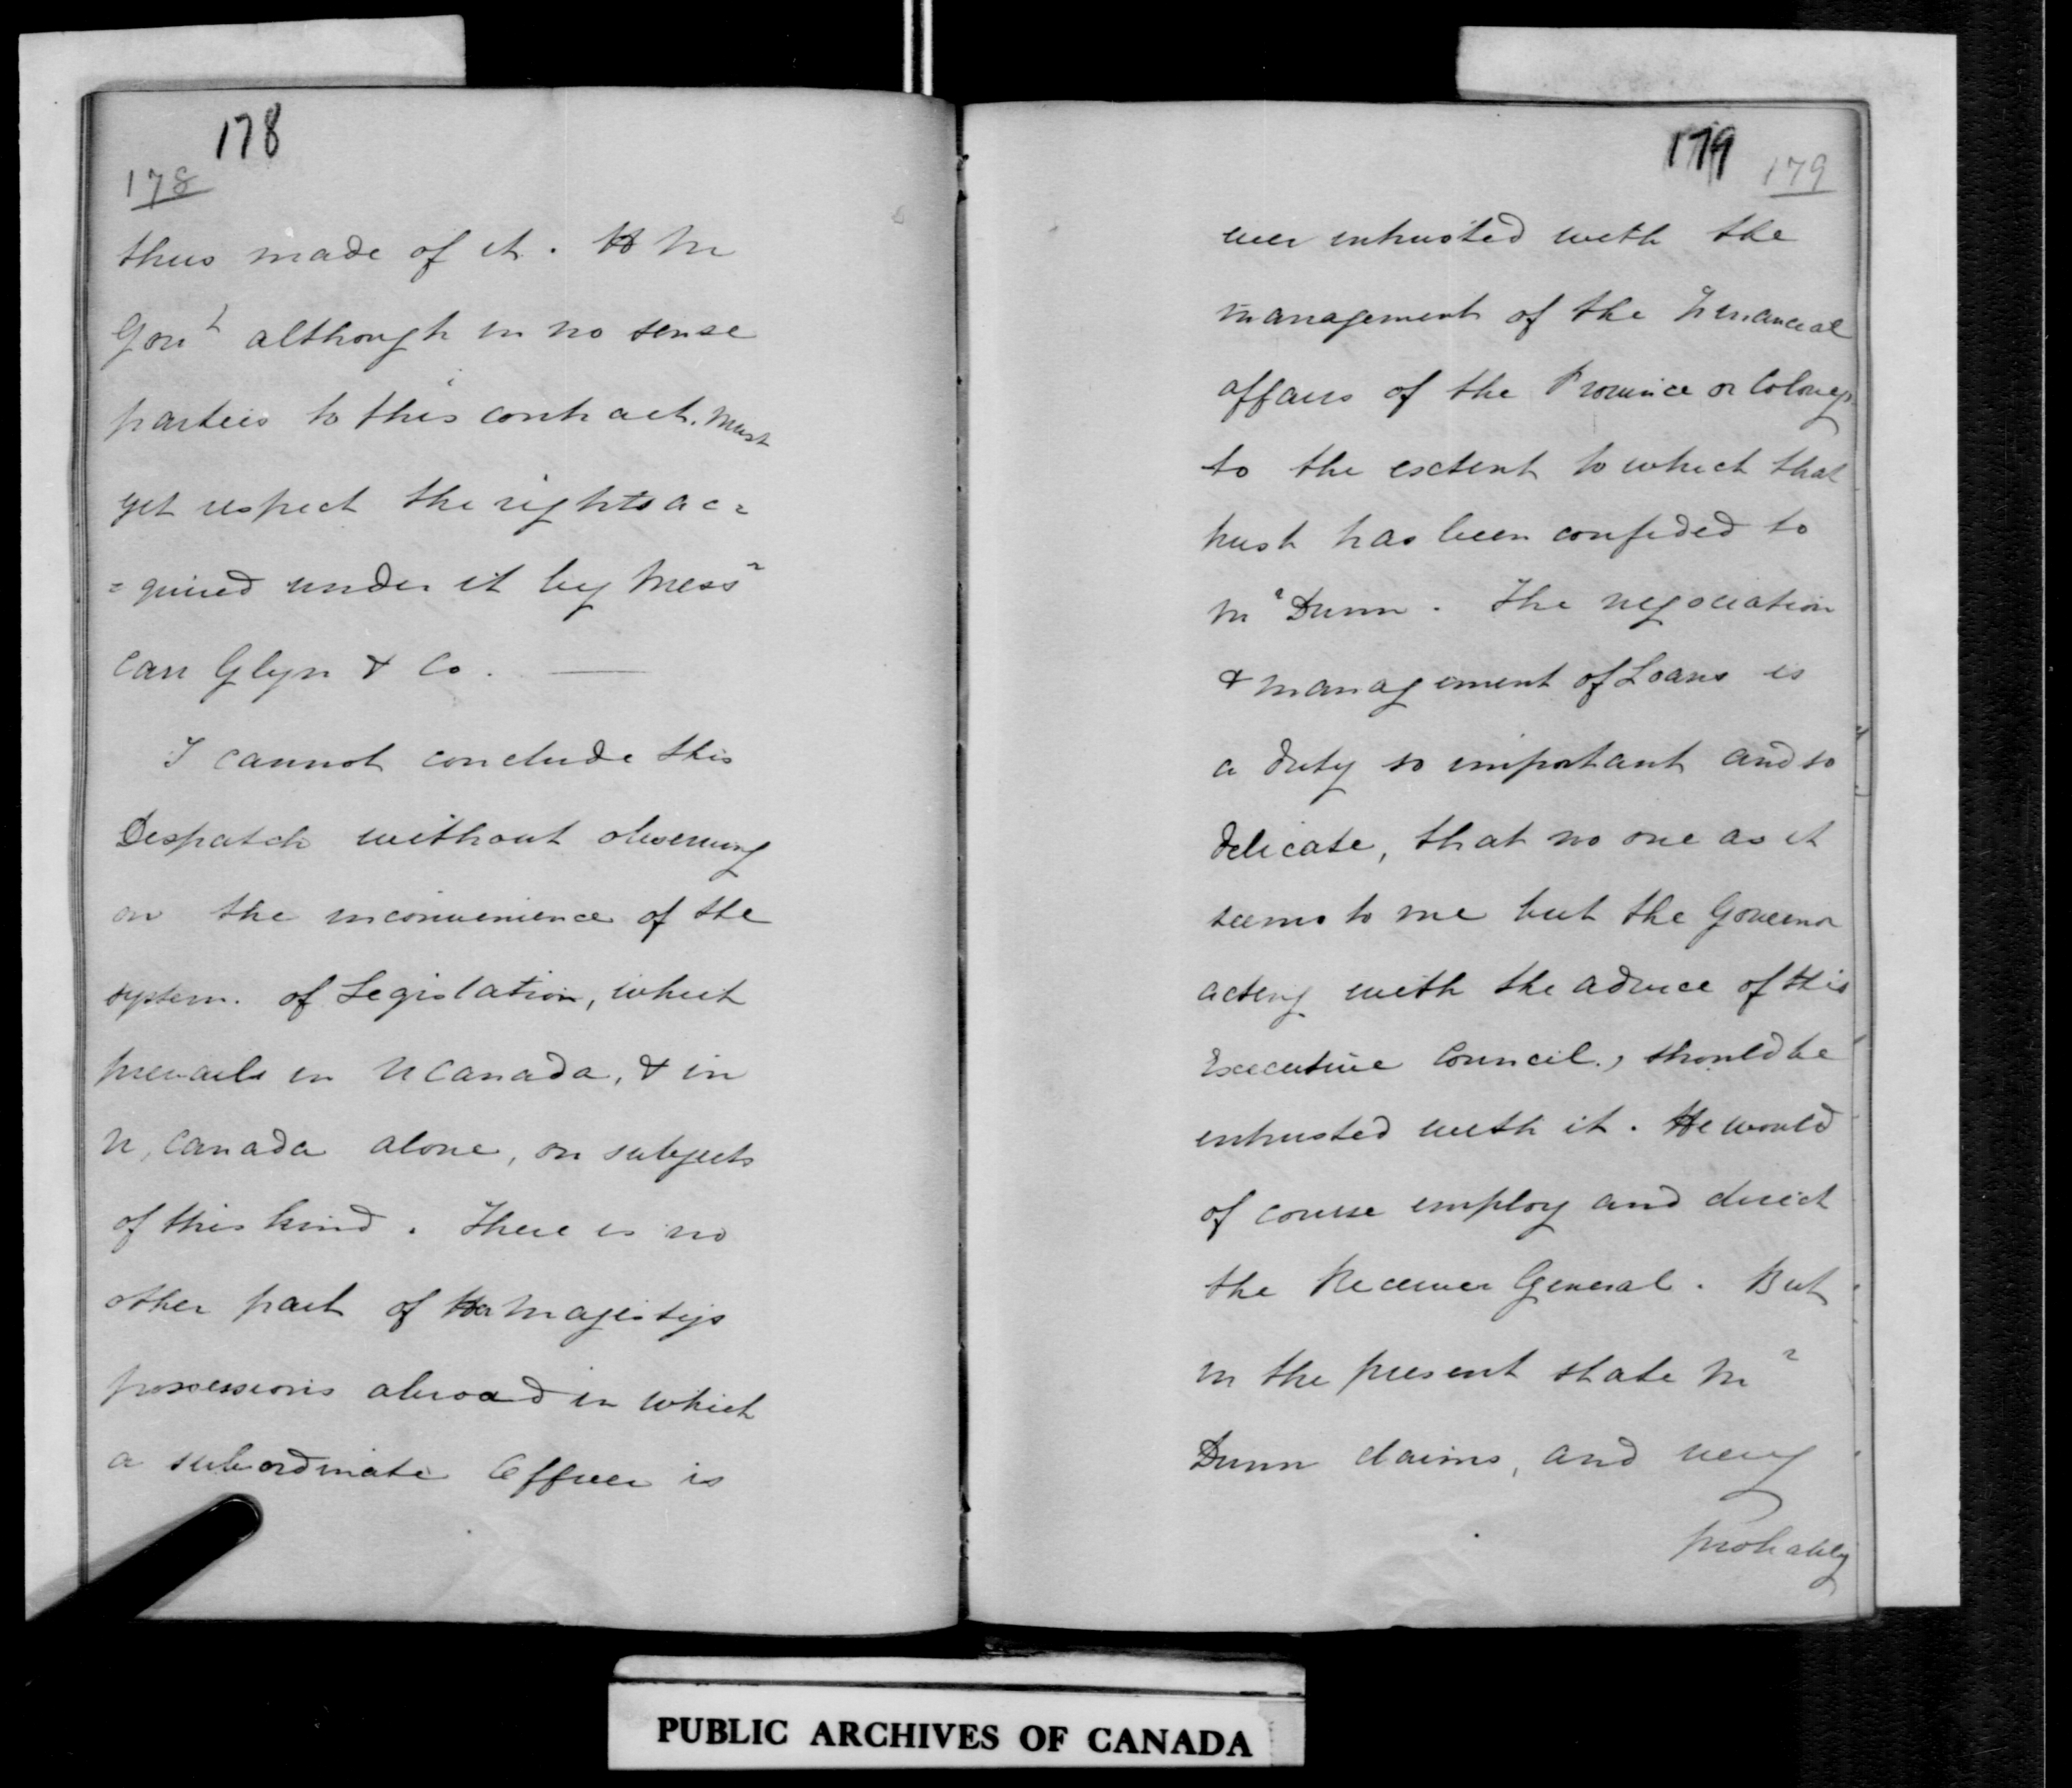 178
178
thus made of it. H M
Govt although in no sense
parties to this contract, must
yet respect the rights ac=
=quired under it by Messrs
Carr Glyn & Co. —
I cannot conclude this
Despatch without observing
on the inconvenience of the
system of Legislation, which
prevails in U Canada, & in
U, Canada alone, on subjects
of this kind. There is no
other part of Her Majestys
possessions abroad in which
a subordinate Officer is
179
179
ever intrusted with the
management of the Financial
affairs of the Province or Colony
to the extent to which that
trust has been confided to
Mr Dunn. The negociation
& management of Loans is
a duty so important and so
delicate, that no one as it
seems to me but the Governor
acting with the advice of His
Executive Council, should be
entrusted with it. He would
of course employ and direct
the Receiver General. But
in the present state Mr
Dunn claims, and very
probably
PUBLIC ARCHIVES OF CANADA